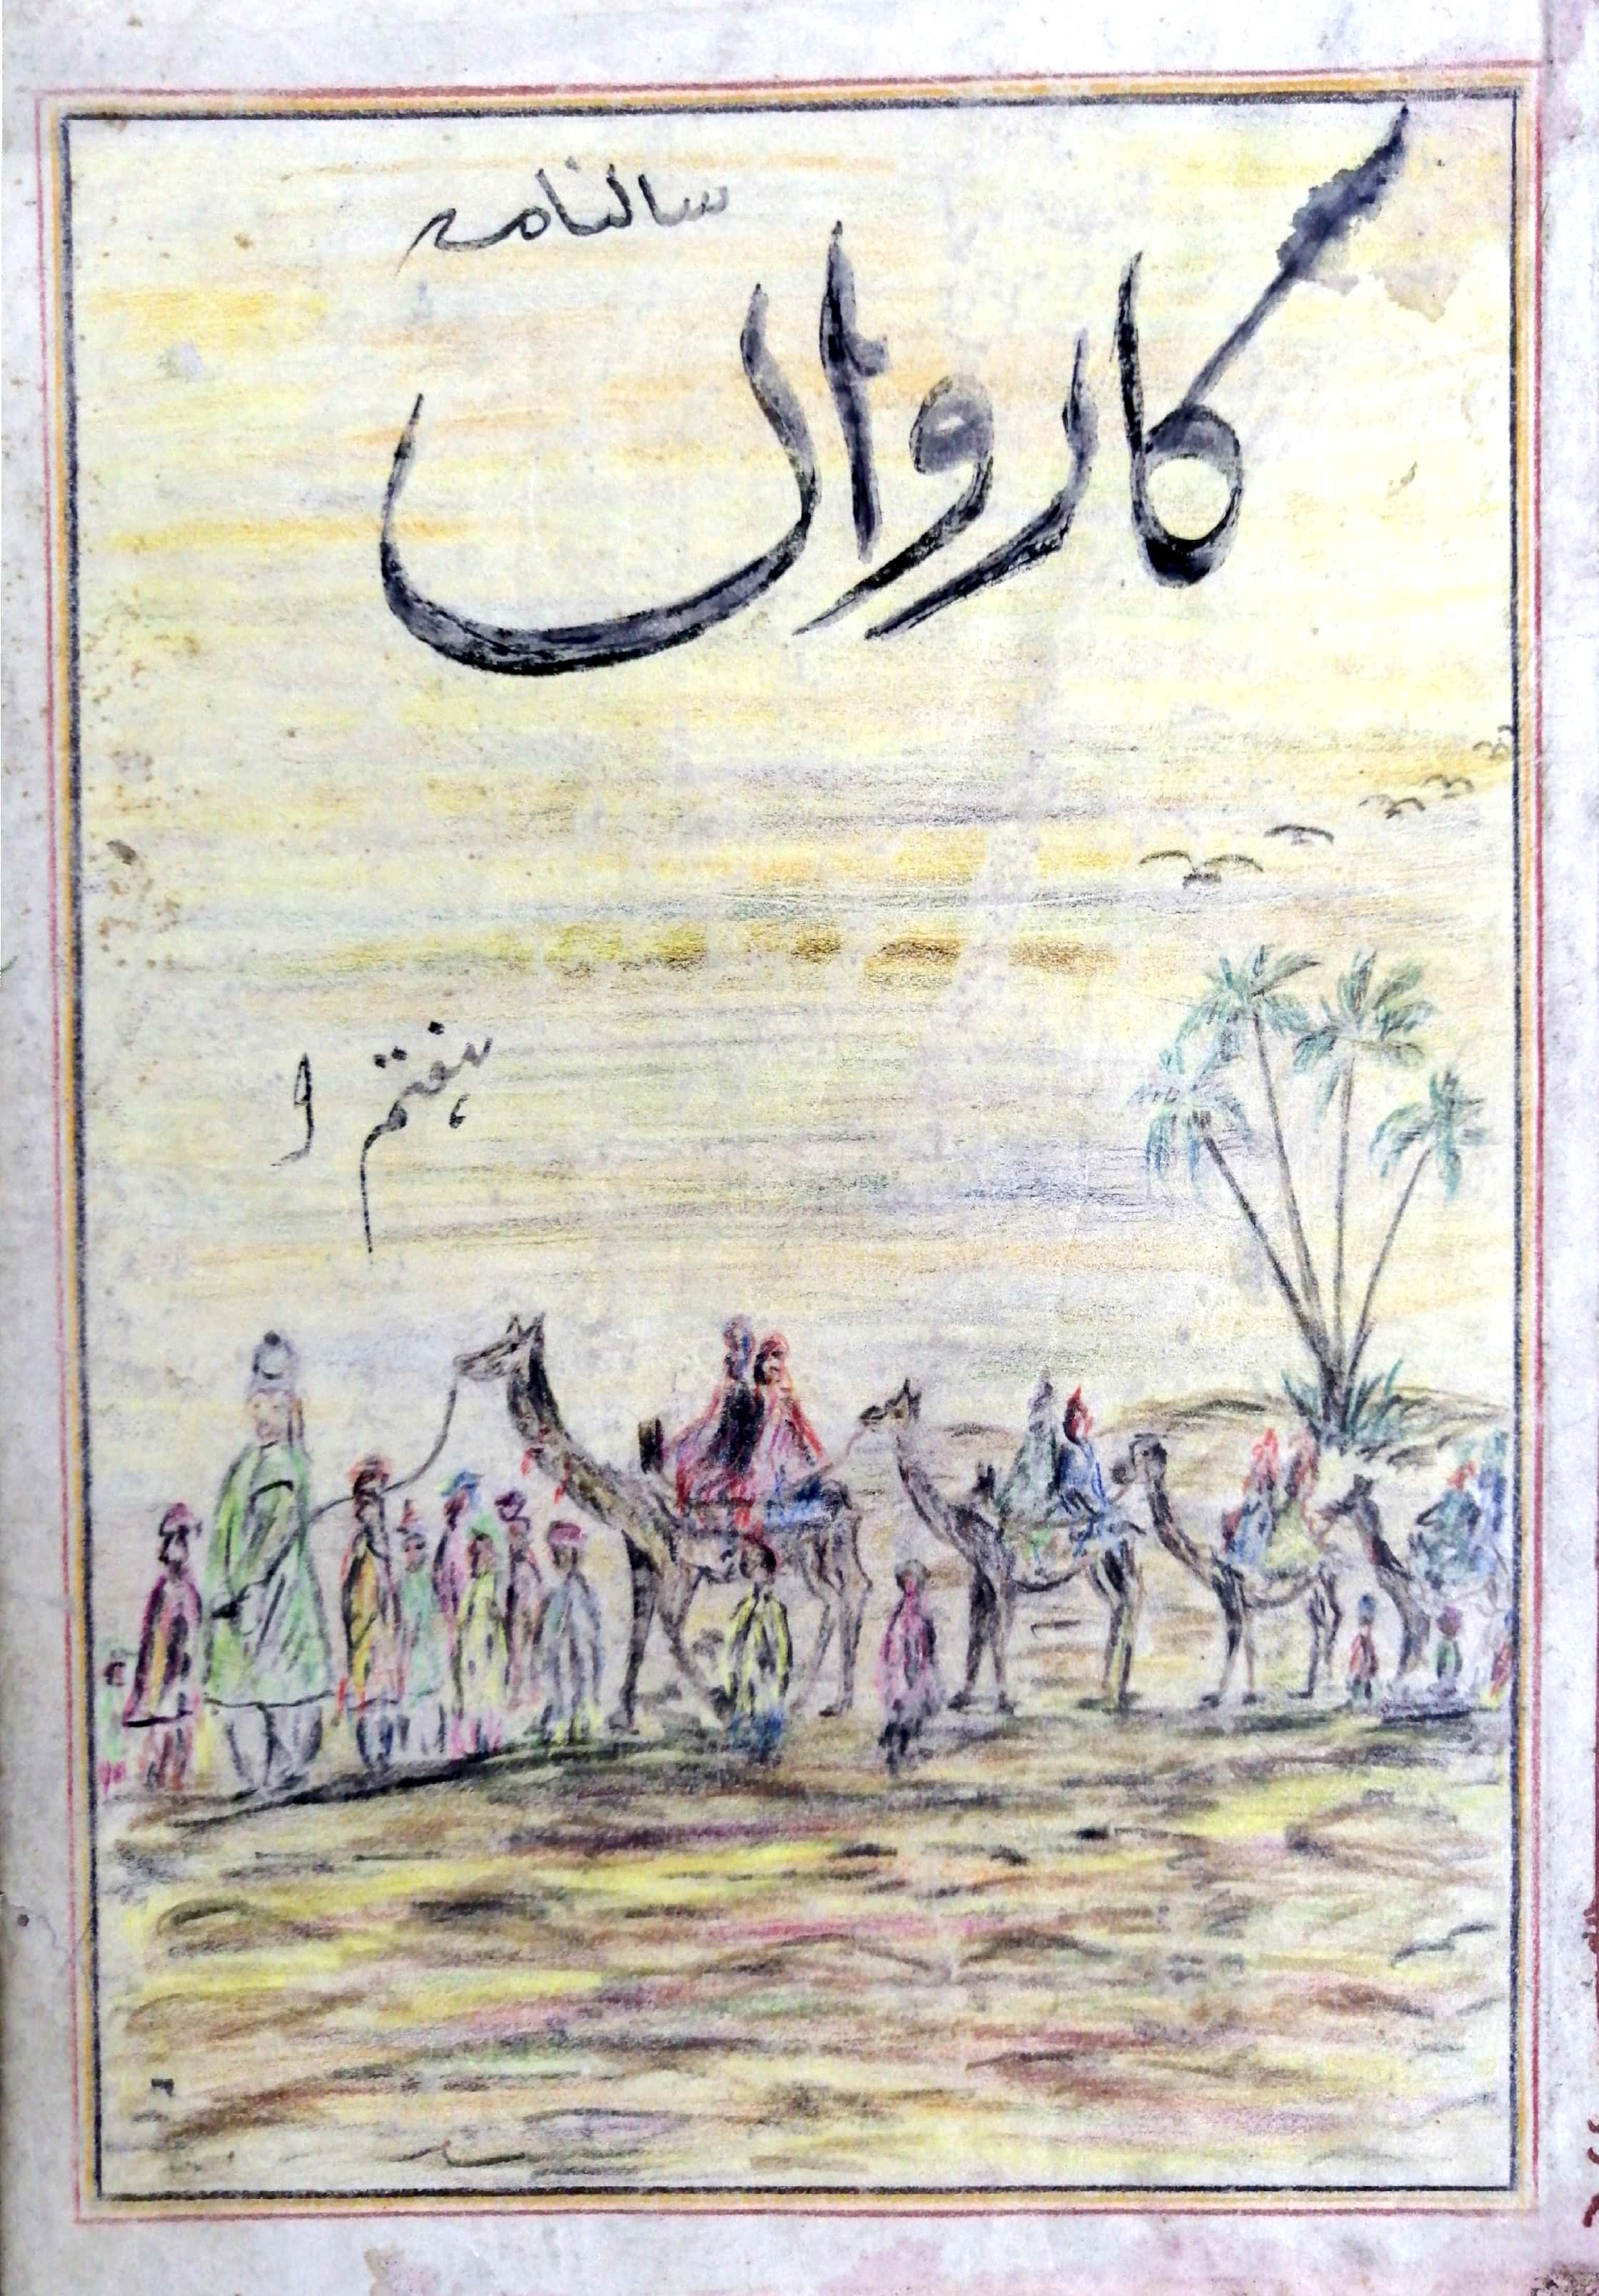 سالنامہ
کارواں
ہفتم و